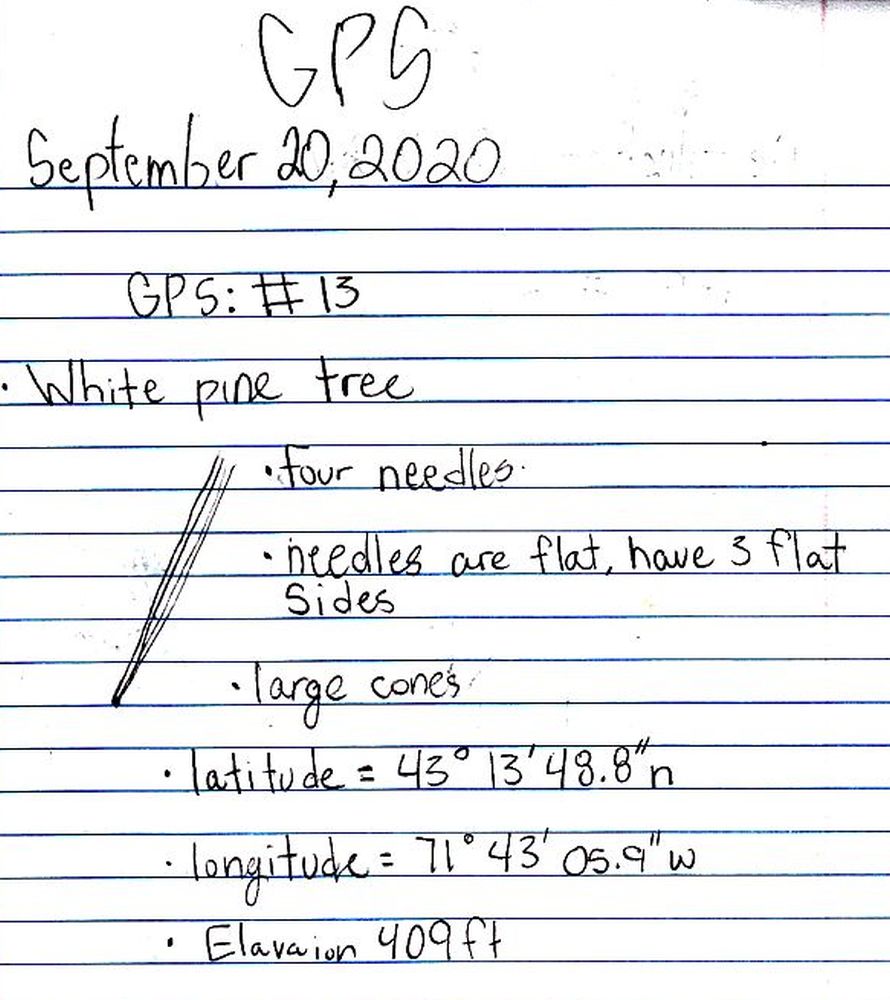 GPS
September 20, 2020
GPS: # 13
· White pine tree
· four needles.
· needles are flat, have 3 flat
Sides
· large cones
· latitude = 43° 13' 48.8" n
· longitude = 71° 43' 05.9" w
· Elavaion 409 ft